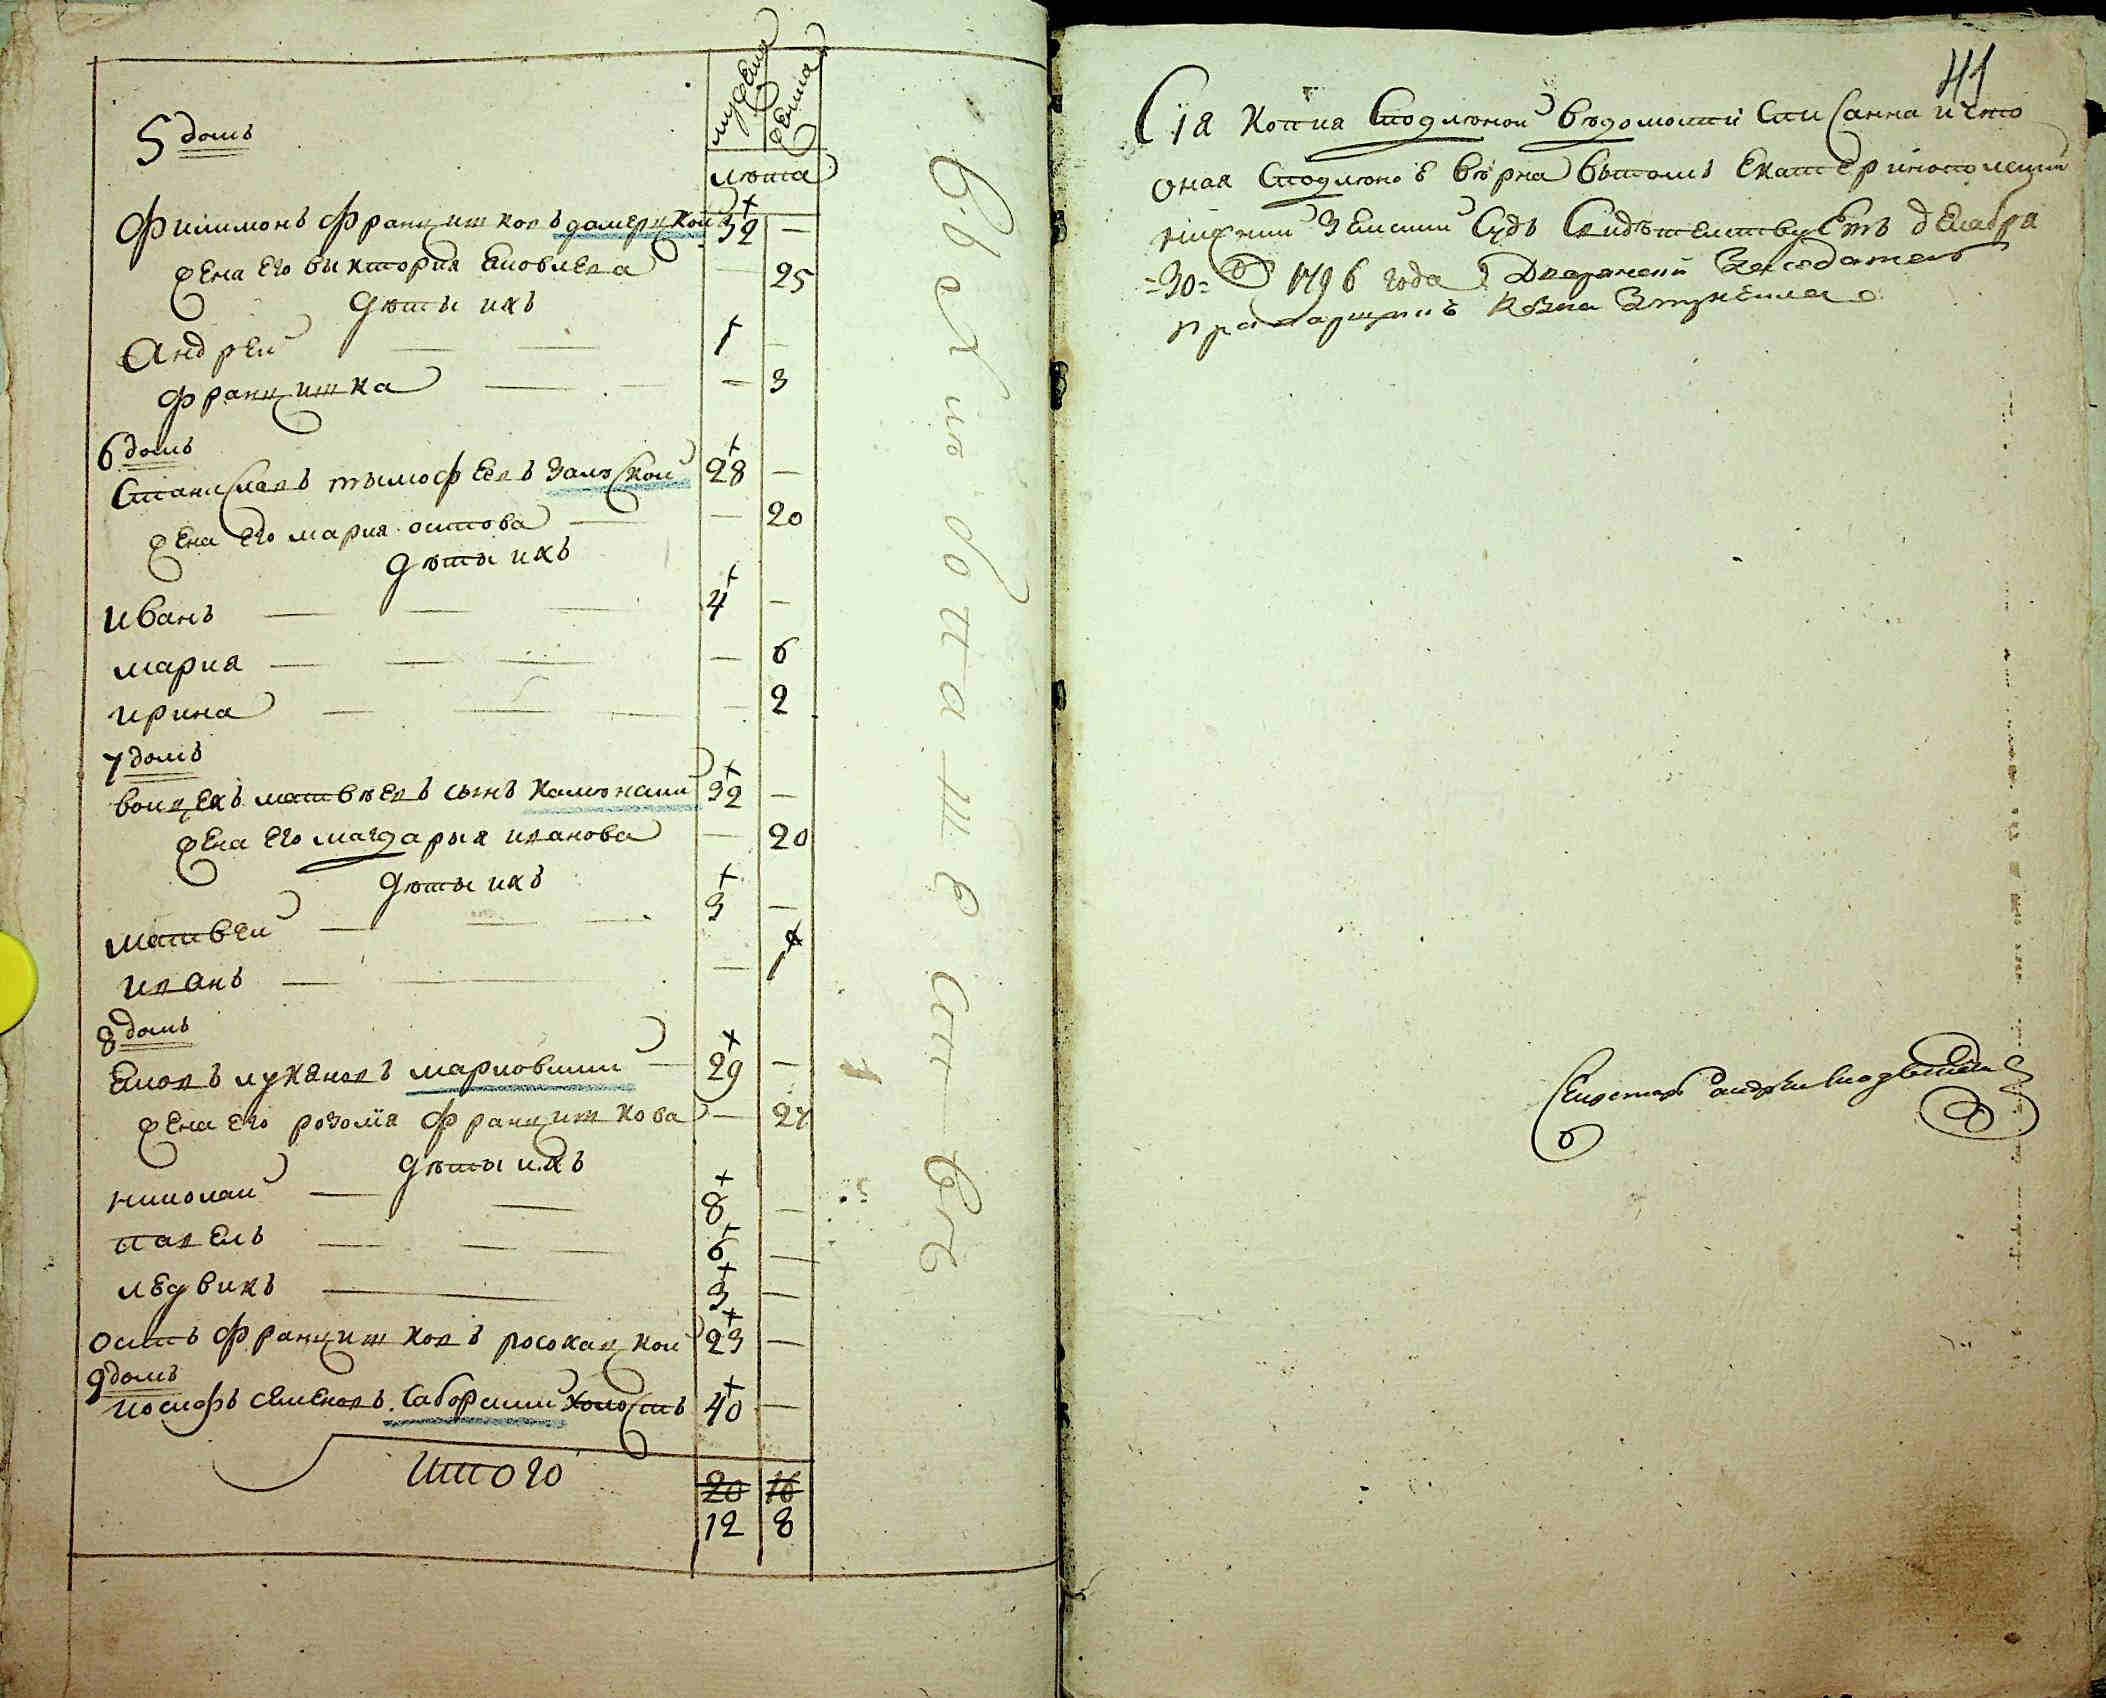 мужеска
женска
лѣта
5 домъ
Филимонъ Францишковъ домерацкой 32 —
жена его виктория яковлева — 25
дѣты ихъ
Андрей — — 1 —
францишка — — — 3
6 домъ
Станиславъ тымофеевъ залѣской 28 —
жена его мария осипова — — 20
дѣты ихъ
иванъ — — — 4 —
мария — — — — 6
ирина — — — — 2
7 домъ
воицехъ матвѣевъ сынъ каменский 32 —
жена его магдарыя иванова — 20
дѣты ихъ
матвей — — — 3 —
иванъ — — — 1
8 домъ
яковъ лукяновъ марковский — 29 —
жена его розолїя францишкова — 24
дѣты ихъ
николай — — 8 —
павелъ — — — 6 —
людвикъ — 3 —
осипъ францишковъ росохацкой 23 —
9 домъ
иосифъ семеновъ саборский холостъ 40 —
Итого 20 16
12 8
41
Сїя копия сподлѣной вѣдомости списанна и что
оная сподлѣною вѣрна вътомъ екатеринополский
нижний земский судъ свидѣтелствуетъ декабря
=30= д 1796 года Дворянский Заседатель
прапорщикъ
Секретарь андрей